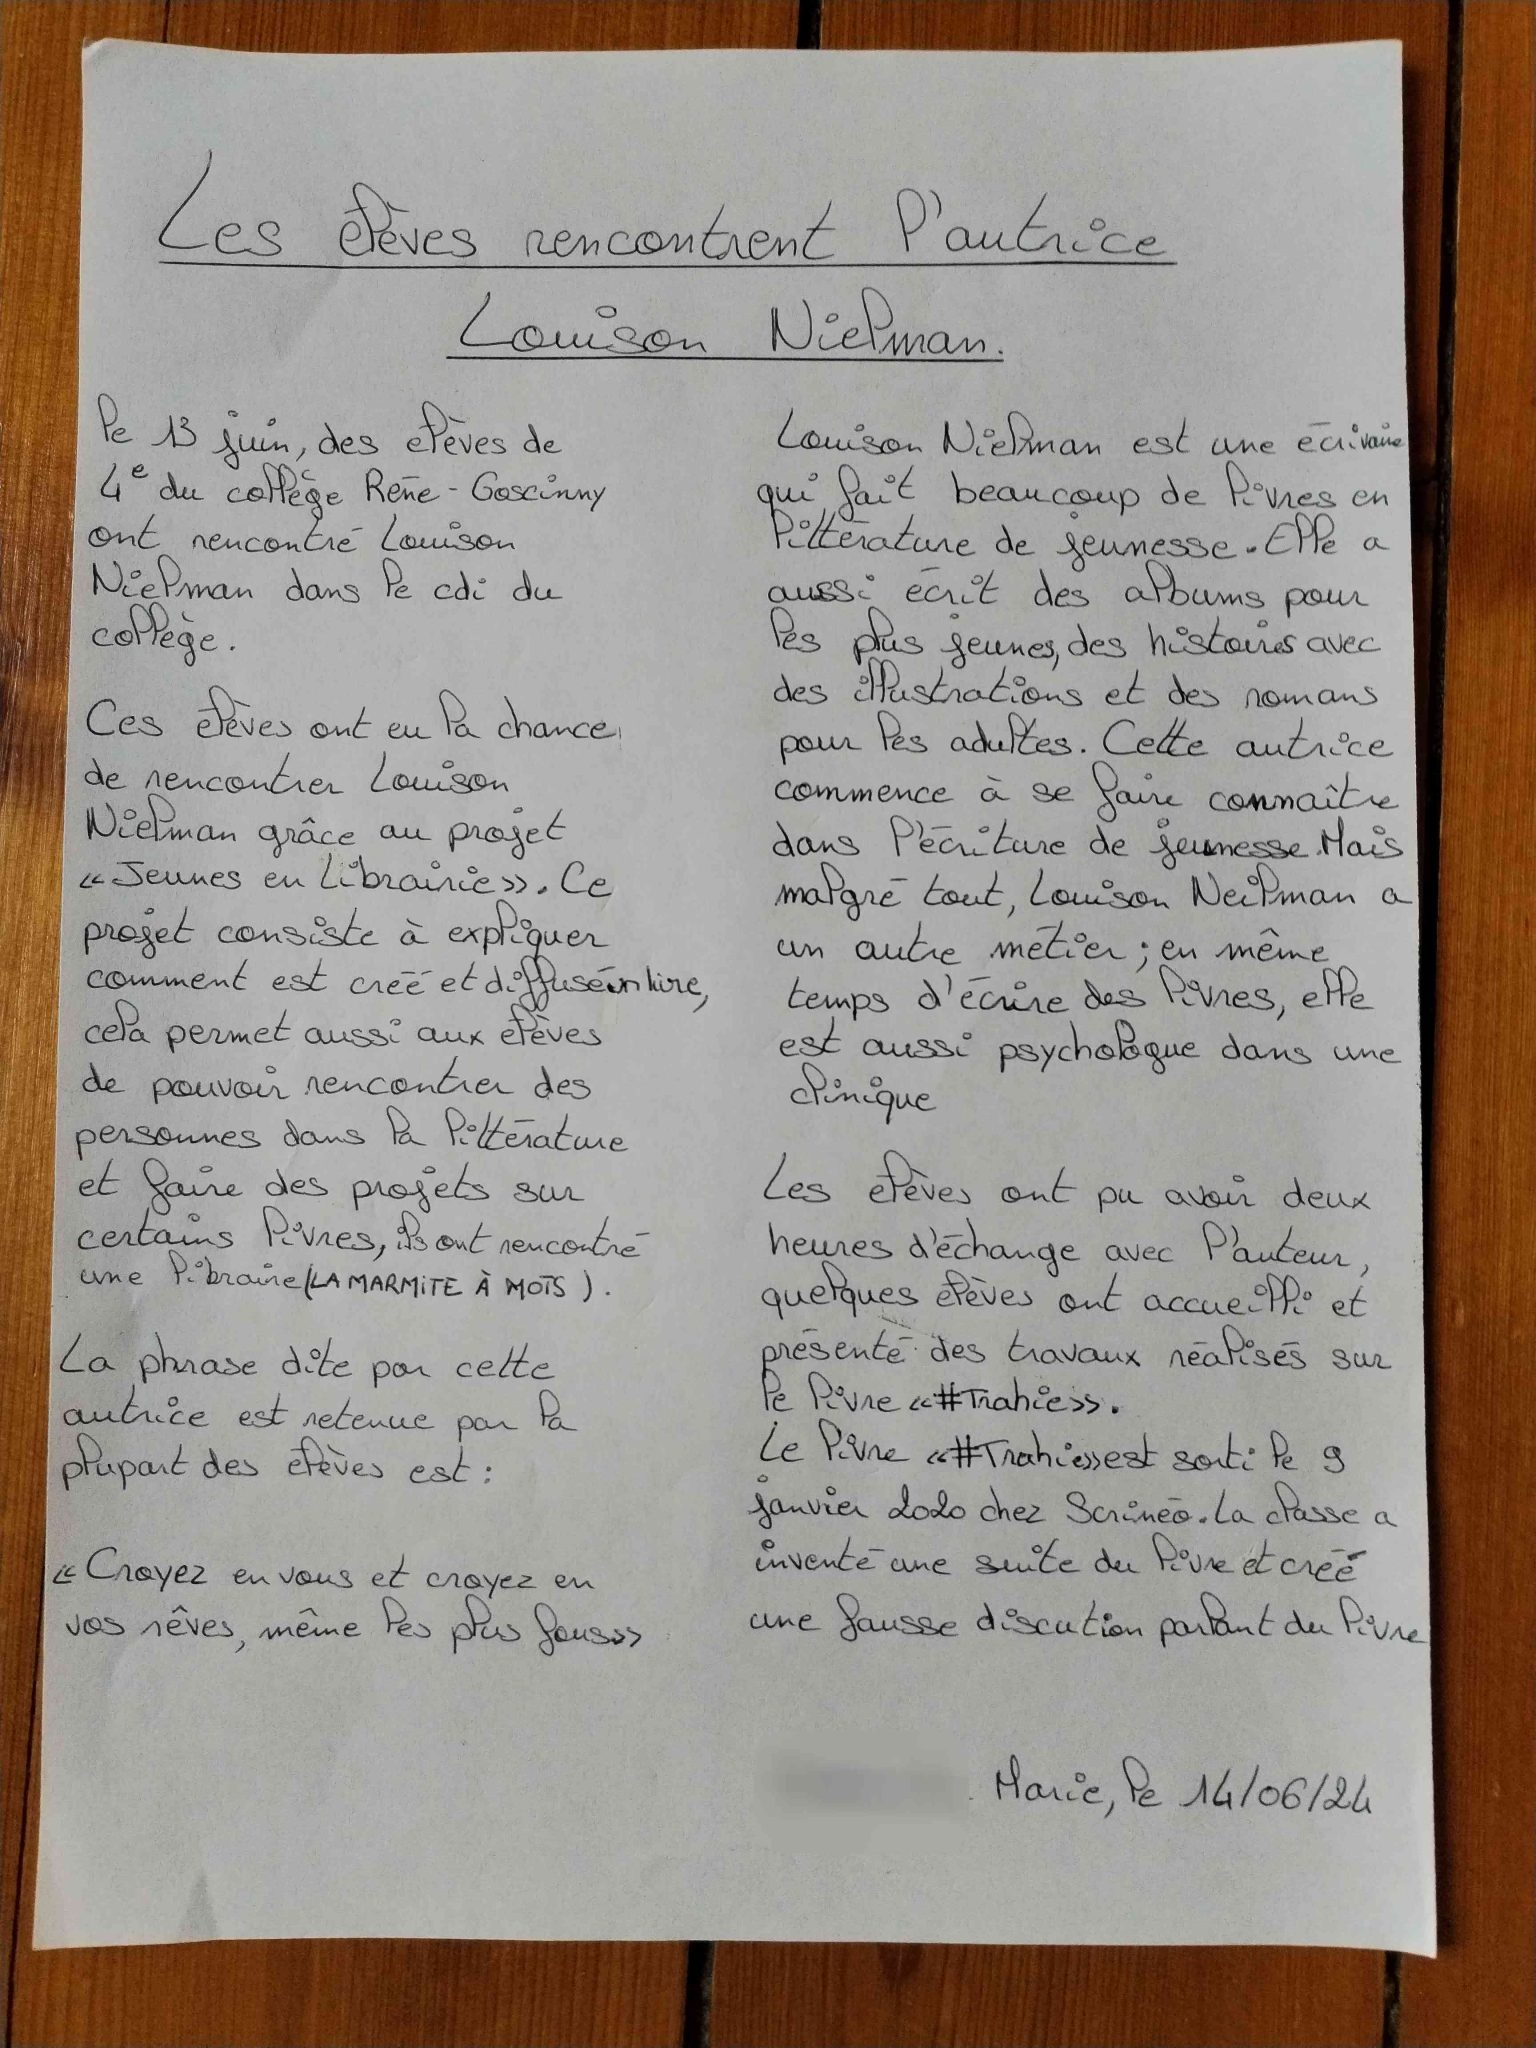 Les élèves rencontrent l'autrice
Louison Nielman.
le 13 juin, des elèves de
4e du collège René-Goscinny
ont rencontré Louison
Nielman dans le cdi du
collège.
Ces elèves ont eu la chance
de rencontrer Louison
Nielman grâce au projet
«Jeunes en Librairie». Ce
projet consiste à expliquer
comment est créé et diffusé un livre,
cela permet aussi aux elèves
de pouvoir rencontrer des
personnes dans la littérature
et faire des projets sur
certains livres, ils ont rencontré
une libraire (LA MARMITE À MOTS).
La phrase dite par cette
autrice est retenue par la
plupart des elèves est :
«Croyez en vous et croyez en
vos rêves, même les plus fous»
Louison Nielman est une écrivaine
qui fait beaucoup de livres en
littérature de jeunesse. Elle a
aussi écrit des albums pour
les plus jeunes, des histoires avec
des illustrations et des romans
pour les adultes. Cette autrice
commence à se faire connaître
dans l'écriture de jeunesse. Mais
malgré tout, Louison Neilman a
un autre métier ; en même
temps d'écrire des livres, elle
est aussi psychologue dans une
clinique
Les elèves ont pu avoir deux
heures d'échange avec l'auteur,
quelques elèves ont accueilli et
présenté des travaux réalisés sur
le livre «#Trahie».
Le livre «#Trahie» est sorti le 9
janvier 2020 chez Scrinéo. La classe a
inventé une suite du livre et créé
une fausse discution parlant du livre
Marie, le 14/06/24